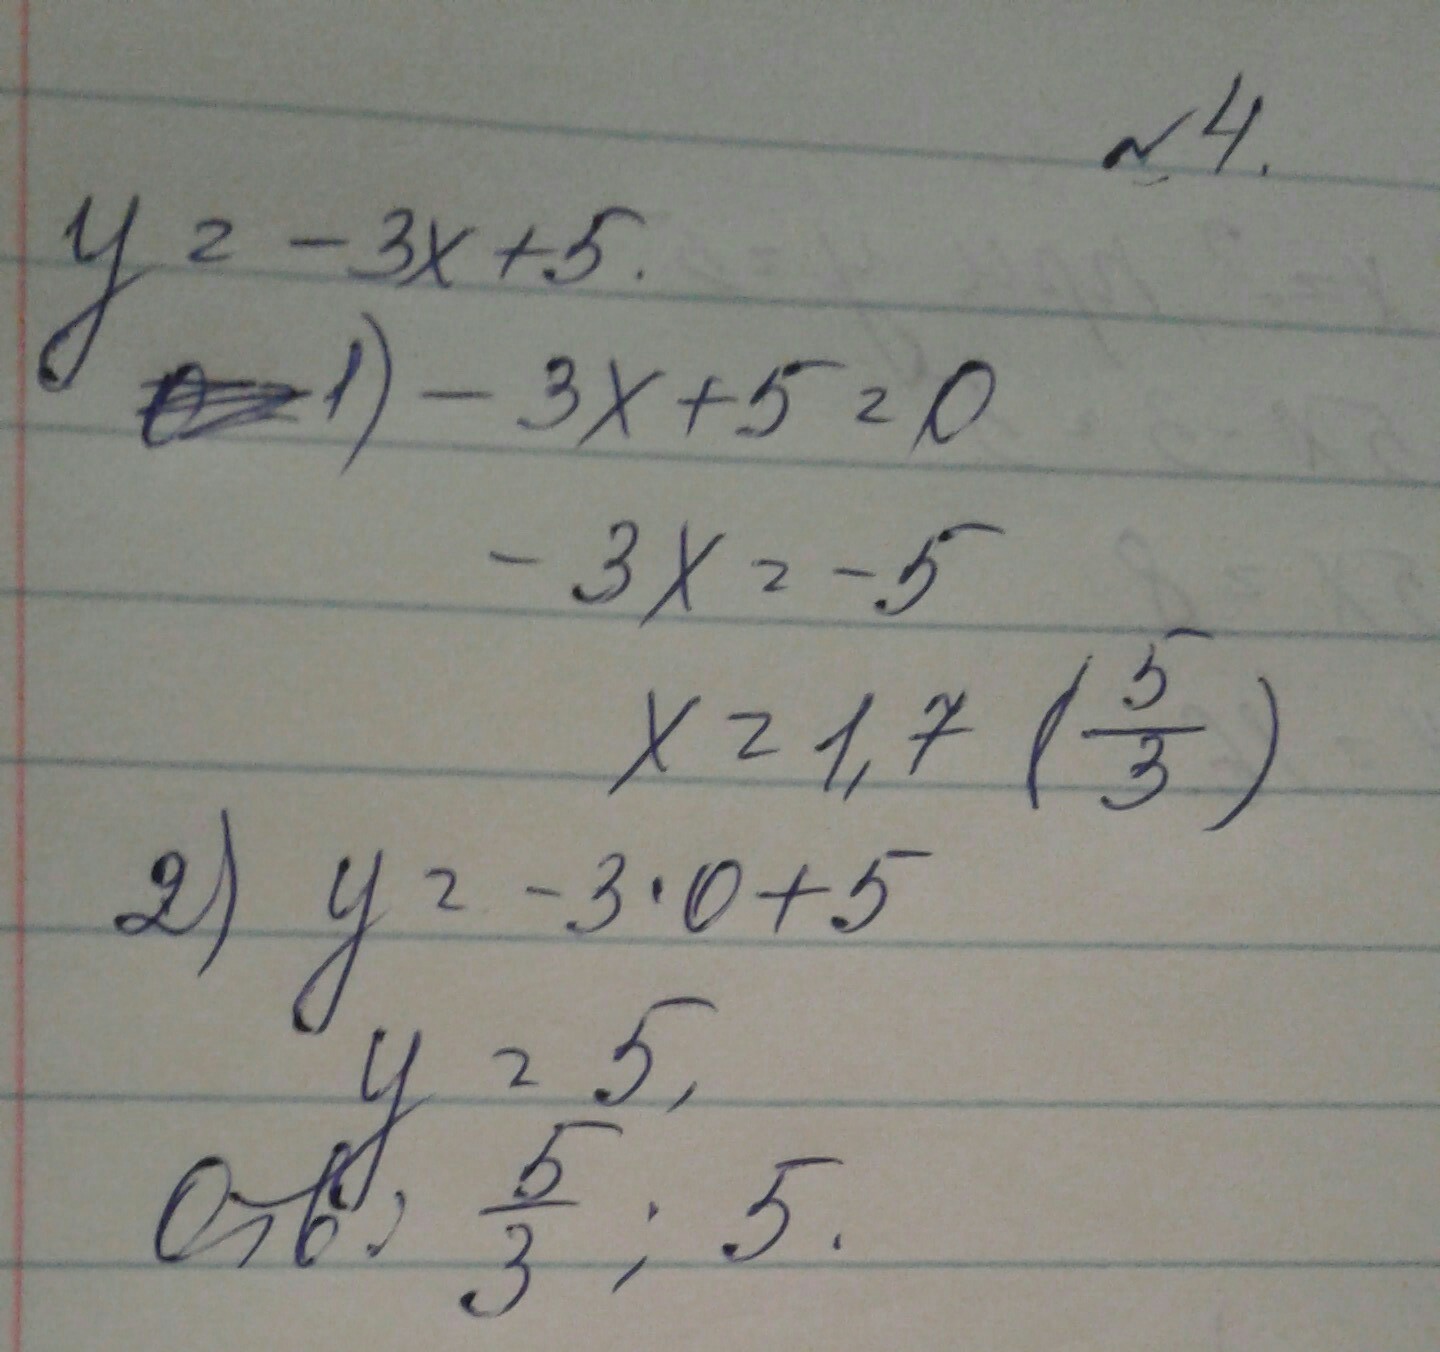 №4.
y = -3x+5.
1) -3x+5=0
-3x=-5
x=1,7 (5/3)
2) y = -3·0+5
y = 5,
Отв: 5/3 ; 5.